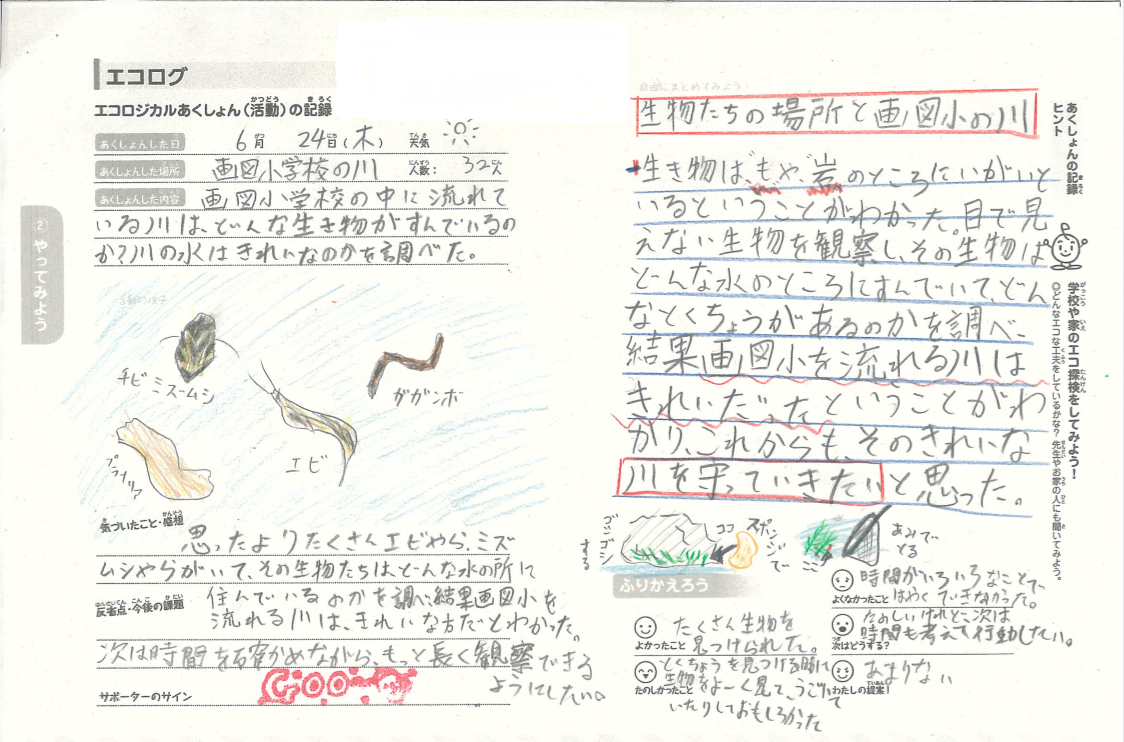 エコログ
エコロジカルあくしょん(活動)の記録
あくしょんした日 6月 24日(木) 天気
あくしょんした場所 画図小学校の川 人数: 32人
あくしょんした内容 画図小学校の中に流れて
いる川は、どんな生き物がすんでいるの
か?川の水はきれいなのかを調べた。
② やってみよう
活動の様子
チビミズムシ
ががンボ
エビ
プラナリア
気づいたこと・感想
思ったよりたくさんエビやら、ミズ
ムシやらがいて、その生物たちは、どんな水の所に
反省点・今後の課題
住んでいるのかを調べ、結果画図小を
流れる川は、きれいな方だとわかった。
次は時間を確かめながら、もっと長く観察できる
ようにしたい。
サポーターのサイン
自由にまとめてみよう
生物たちの場所と画図小の川
生き物は、もや、岩のところにいがいと
いるということがわかった。目で見
えない生物を観察し、その生物は
どんな水のところにすんでいて、どん
なとくちょうがあるのかを調べ、
結果画図小を流れる川は
きれいだったということがわ
かり、これからも、そのきれいな
川を守っていきたいと思った。
ゴシゴシ
する
ココ
スポンジ
で
ここ
あみで
とる
ふりかえろう
よかったこと
たくさん生物を
見つけられた。
たのしかったこと
とくちょうを見つける時に
生物をよーく見て、うごいて
いたりしておもしろかった
よくなかったこと
時間がいろいろなことで、
はやくできなかった。
次はどうする?
たのしいけれど、次は
時間も考えて行動したい。
わたしの提案!
あまりない
あくしょんの記録
ヒント
学校や家のエコ探検をしてみよう!
◎どんなエコな工夫をしているかな? 先生やお家の人にも聞いてみよう。